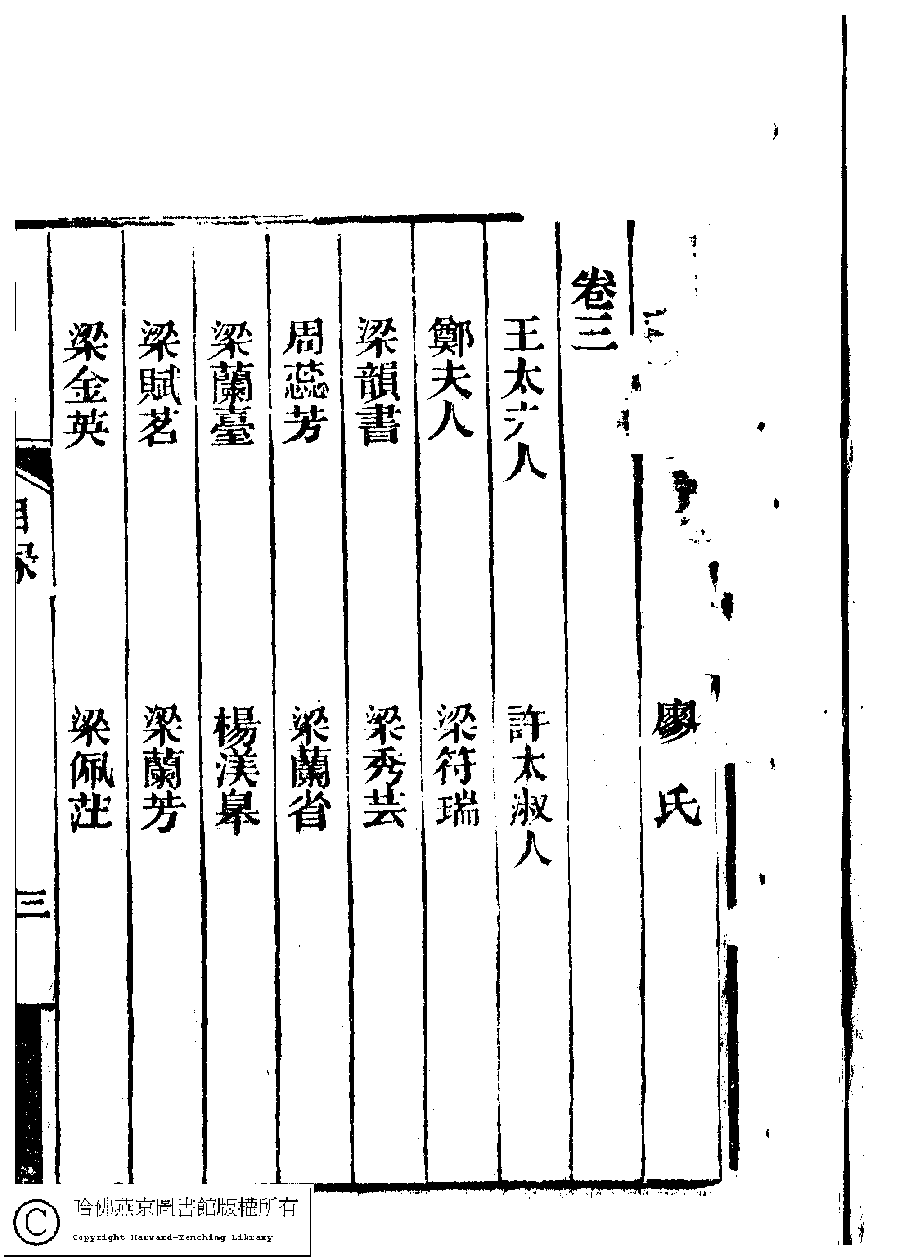 廖氏
卷三
王太夫人　許太淑人
鄭夫人　梁符瑞
梁韻書　梁秀芸
周蕊芳　梁蘭省
梁蘭臺　楊渼皋
梁賦茗　梁蘭芳
梁金英　梁佩茳
目录
三
哈佛燕京圖書館版權所有
Copyright Harvard-Yenching Library